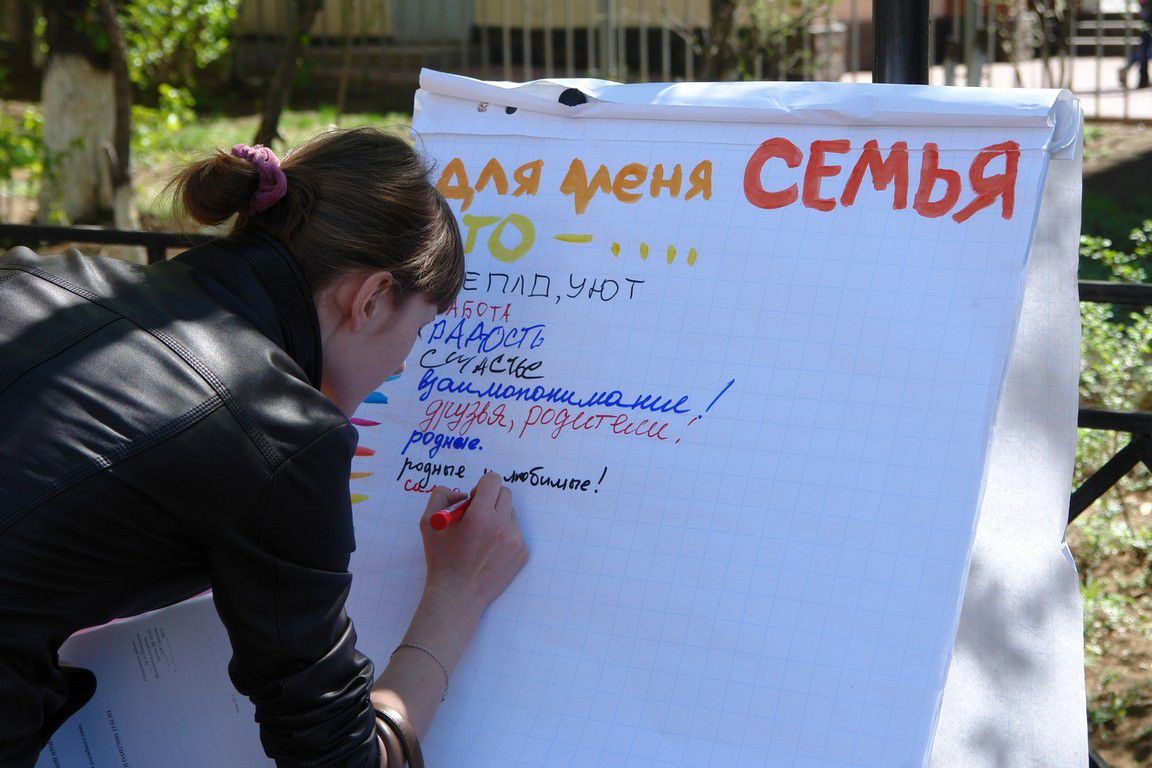 для меня СЕМЬЯ
ТО – .....
ЕПЛО, УЮТ
АБОТА
РАДОСТЬ
СЧАСТЬЕ
взаимопонимание!
друзья, родители!
родные.
родные и любимые!